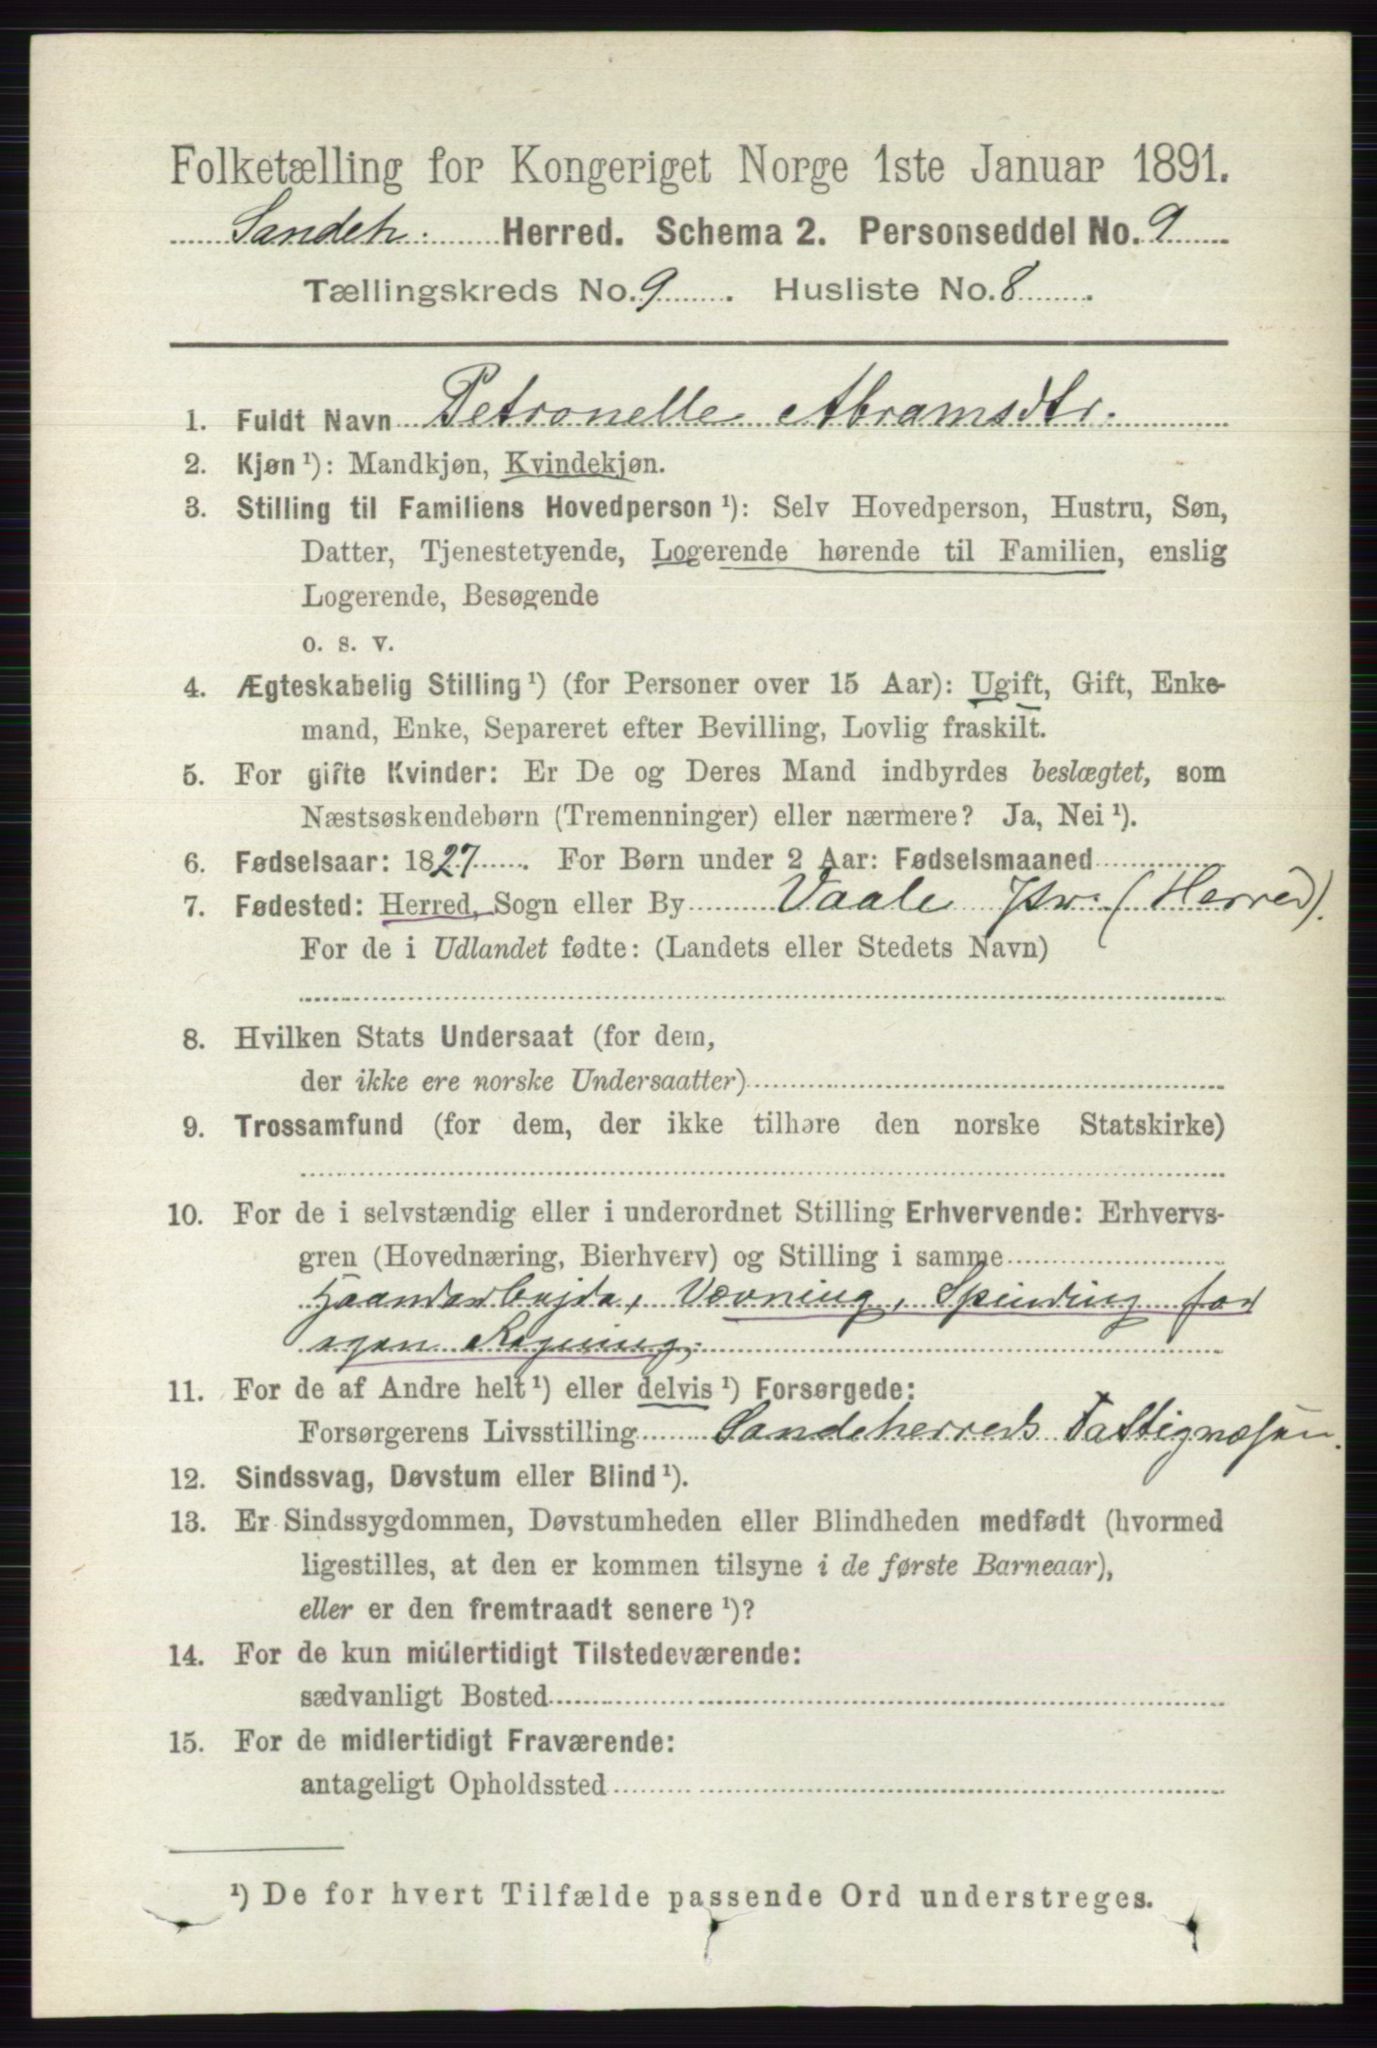 Folketælling for Kongeriget Norge 1ste Januar 1891.
Sandeh. Herred. Schema 2. Personseddel No. 9
Tællingskreds No. 9. Husliste No. 8.
1. Fuldt Navn Petronelle Abramsdtr.
2. Kjøn ¹): Mandkjøn, Kvindekjøn.
3. Stilling til Familiens Hovedperson ¹): Selv Hovedperson, Hustru, Søn,
Datter, Tjenestetyende, Logerende hørende til Familien, enslig
Logerende, Besøgende
o. s. v.
4. Ægteskabelig Stilling ¹) (for Personer over 15 Aar): Ugift, Gift, Enke-
mand, Enke, Separeret efter Bevilling, Lovlig fraskilt.
5. For gifte Kvinder: Er De og Deres Mand indbyrdes beslægtet, som
Næstsøskendebørn (Tremenninger) eller nærmere? Ja, Nei ¹).
6. Fødselsaar: 1827. For Børn under 2 Aar: Fødselsmaaned
7. Fødested: Herred, Sogn eller By Vaale (Herred).
For de i Udlandet fødte: (Landets eller Stedets Navn)
8. Hvilken Stats Undersaat (for dem,
der ikke ere norske Undersaatter)
9. Trossamfund (for dem, der ikke tilhøre den norske Statskirke)
10. For de i selvstændig eller i underordnet Stilling Erhvervende: Erhvervs-
gren (Hovednæring, Bierhverv) og Stilling i samme
Haandarbejde, Vævning, Spinding for
egen Regning,
11. For de af Andre helt ¹) eller delvis ¹) Forsørgede:
Forsørgerens Livsstilling Sandeherreds Fattigvæsen.
12. Sindssvag, Døvstum eller Blind ¹).
13. Er Sindssygdommen, Døvstumheden eller Blindheden medfødt (hvormed
ligestilles, at den er kommen tilsyne i de første Barneaar),
eller er den fremtraadt senere ¹)?
14. For de kun midlertidigt Tilstedeværende:
sædvanligt Bosted
15. For de midlertidigt Fraværende:
antageligt Opholdssted
¹) De for hvert Tilfælde passende Ord understreges.